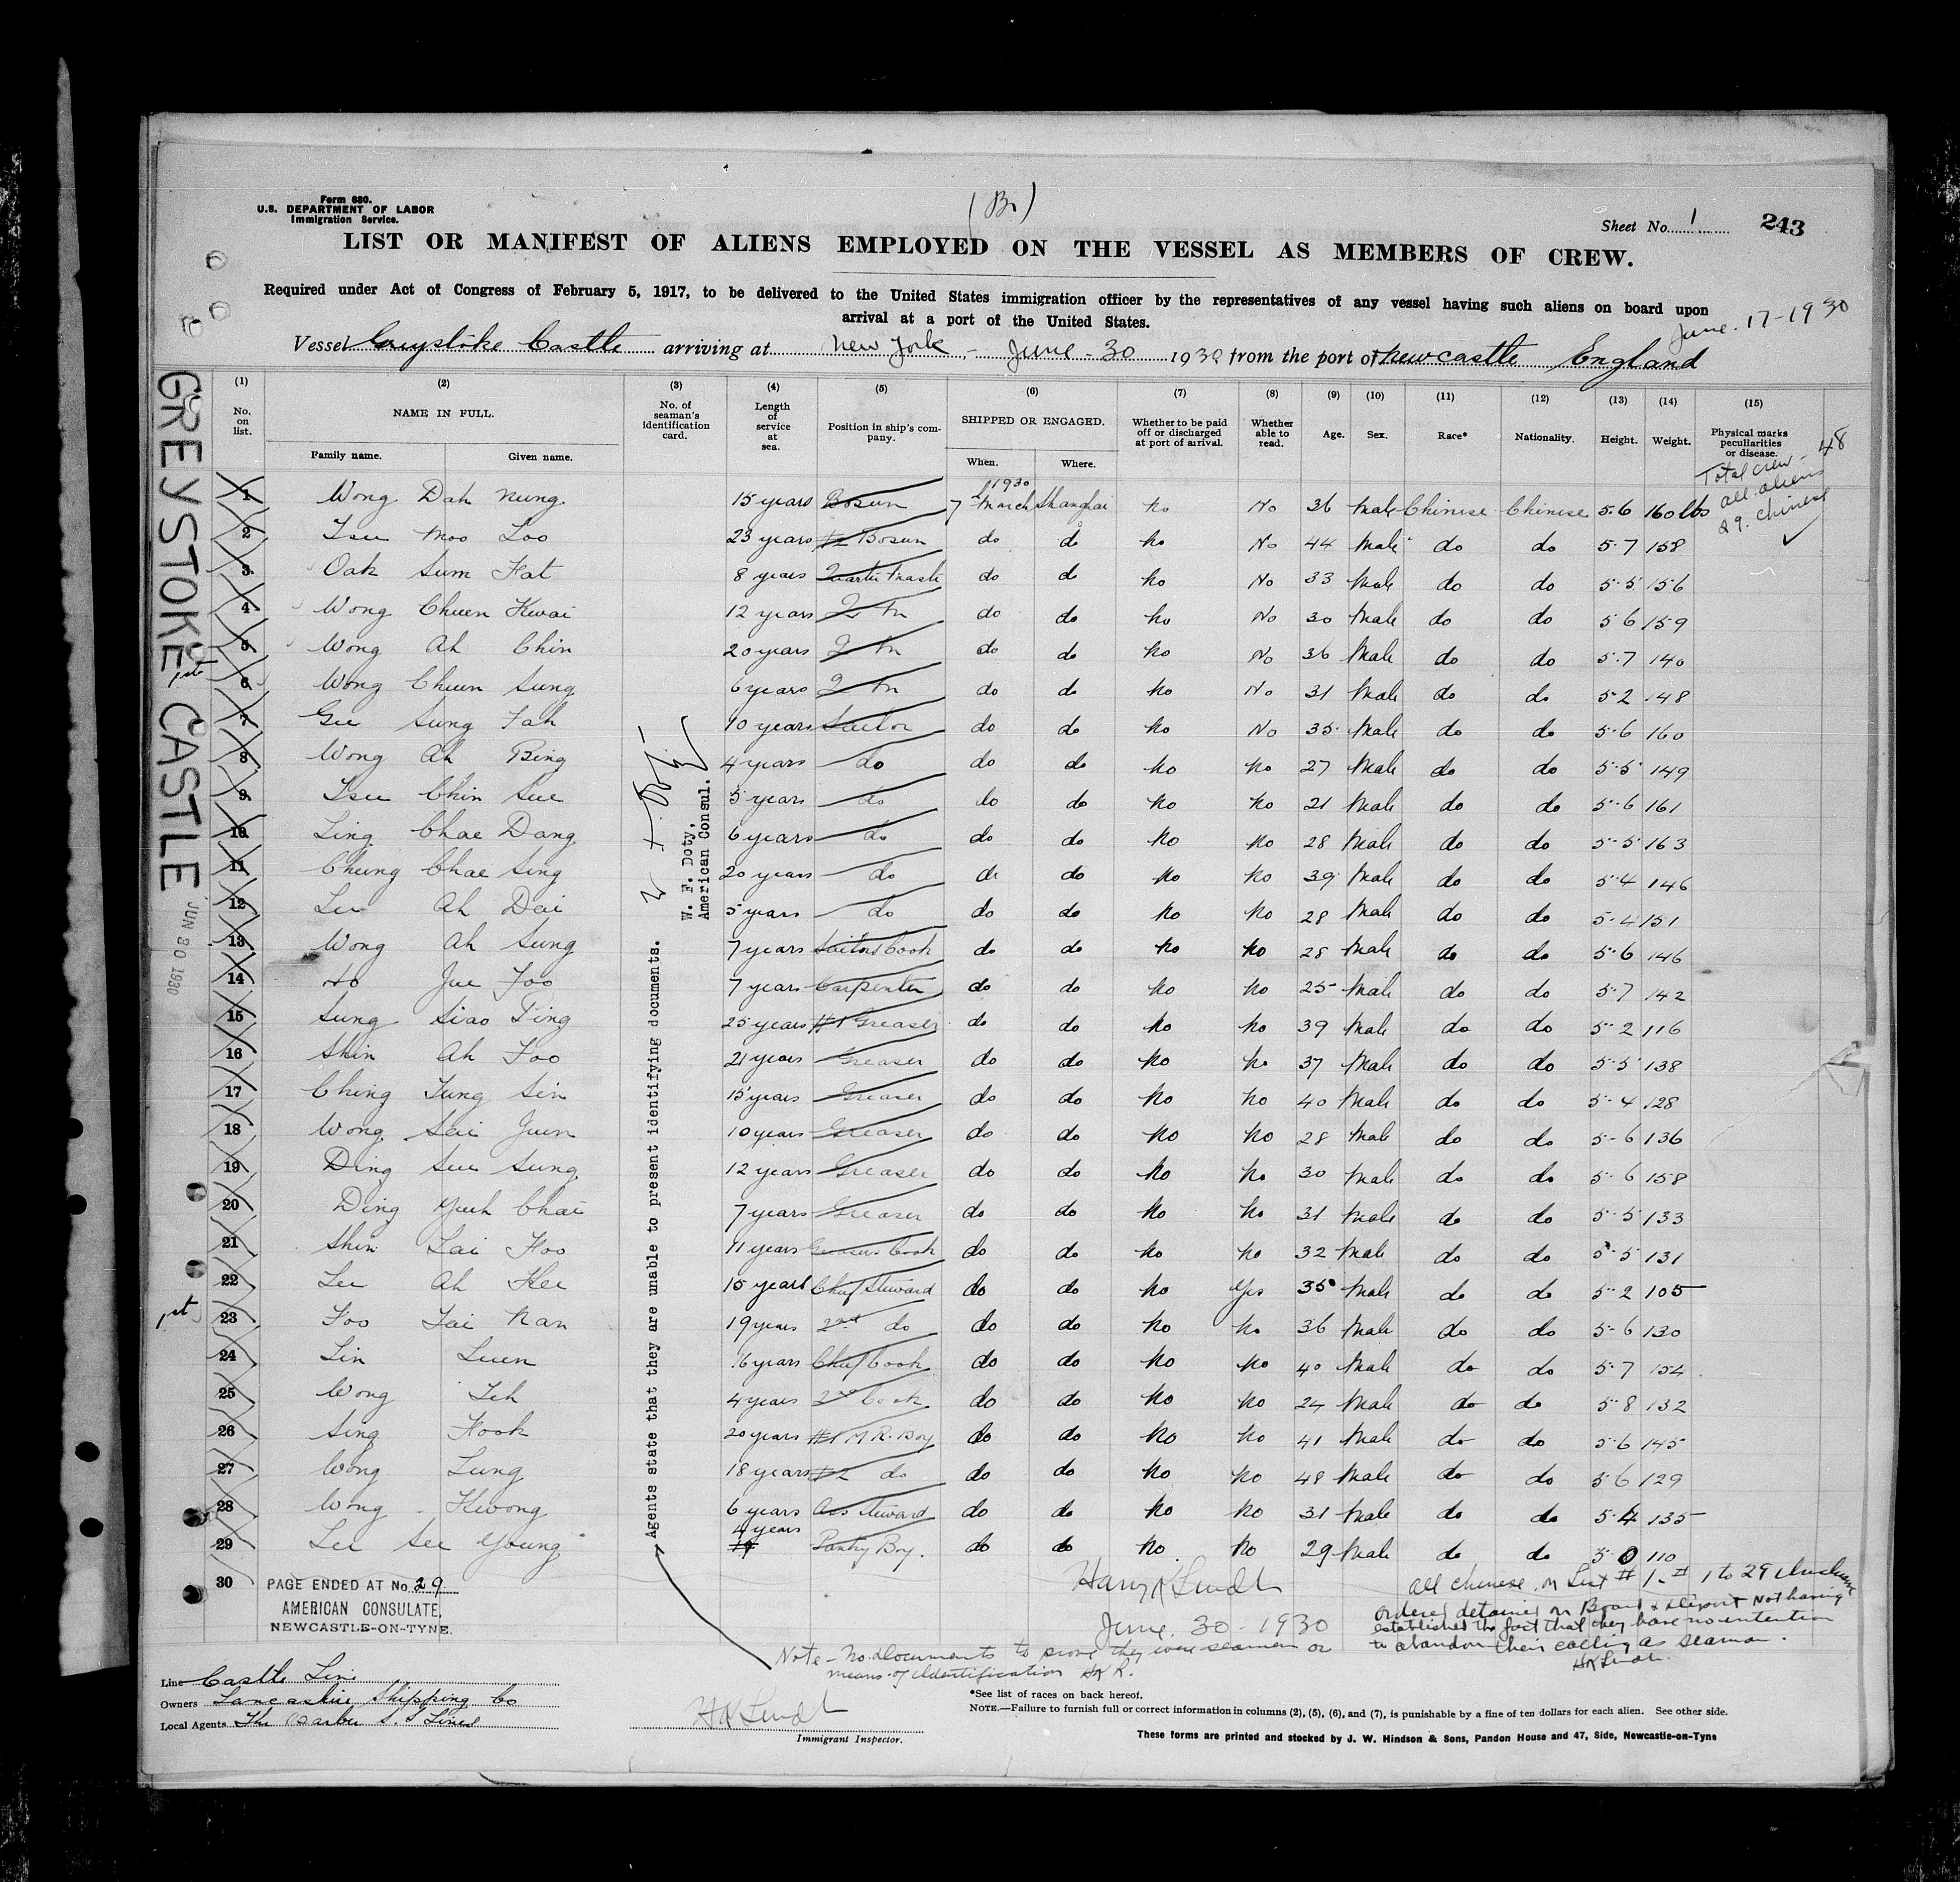 Form 680.
U.S. DEPARTMENT OF LABOR
Immigration Service.
(Br)
Sheet No. 1
243
LIST OR MANIFEST OF ALIENS EMPLOYED ON THE VESSEL AS MEMBERS OF CREW.
Required under Act of Congress of February 5, 1917, to be delivered to the United States immigration officer by the representatives of any vessel having such aliens on board upon
arrival at a port of the United States.
June. 17-1930
Vessel Greystoke Castle arriving at New York - June - 30 1930 from the port of Newcastle England
(1) (2) (3) (4) (5) (6) (7) (8) (9) (10) (11) (12) (13) (14) (15)
No. on list. NAME IN FULL. Family name. Given name. No. of seaman's identification card. Length of service at sea. Position in ship's company. SHIPPED OR ENGAGED. When. Where. Whether to be paid off or discharged at port of arrival. Whether able to read. Age. Sex. Race* Nationality. Height. Weight. Physical marks peculiarities or disease.
Total crew - 48
all aliens
29. Chinese
1 Wong Dah Nung. 15 years Bosun 7 March 1930 Shanghai No No 36 Male Chinese Chinese 5.6 160 lbs
2 Tsu Moo Loo 23 years #2 Bosun do do No No 44 Male do do 5.7 158
3 Oak Sum Fat 8 years Quarter Mastr do do No No 33 Male do do 5.5 156
4 Wong Chuen Kwai 12 years Q M do do No No 30 Male do do 5 6 159
5 Wong Ah Chin 20 years Q M do do No No 36 Male do do 5.7 140
6 Wong Chuen Sung 6 years Q M do do No No 31 Male do do 5-2 148
7 Gee Sung Fah 10 years Sailor do do No No 35 Male do do 5-6 160
8 Wong Ah Bing 4 years do do do No No 27 Male do do 5-5 149
9 Tsu Chin Sue 5 years do do do No No 21 Male do do 5-6 161
10 Ling Chae Dang 6 years do do do No No 28 Male do do 5-5 163
11 Chung Chae Sing 20 years do do do No No 39 Male do do 5-4 146
12 Lee Ah Dai 5 years do do do No No 28 Male do do 5-4 151
13 Wong Ah Sung 7 years Sailors Cook do do No No 28 Male do do 5-6 146
14 Ho Jue Foo 7 years Carpenter do do No No 25 Male do do 5-7 142
15 Sung Siao Ting 25 years #1 Greaser do do No No 39 Male do do 5-2 116
16 Shin Ah Foo 21 years Greaser do do No No 37 Male do do 5-5 138
17 Ching Tung Sin 15 years Greaser do do No No 40 Male do do 5-4 128
18 Wong Sai Juen 10 years Greaser do do No No 28 Male do do 5-6 136
19 Ding Sue Sung 12 years Greaser do do No No 30 Male do do 5-6 158
20 Ding Yuh Chai 7 years Greaser do do No No 31 Male do do 5-5 133
21 Shin Lai Foo 11 years Greasers Cook do do No No 32 Male do do 5-5 131
22 Lee Ah Hee 15 years Chief Steward do do No Yes 35 Male do do 5-2 105
23 Foo Tai Nan 19 years 2nd do do do No No 36 Male do do 5-6 130
24 Lin Luen 16 years Chief Cook do do No No 40 Male do do 5-7 154
25 Wong Teh 4 years 2nd Cook do do No No 24 Male do do 5-8 132
26 Sing Fook 20 years #1 M R. Boy do do No No 41 Male do do 5-6 145
27 Wong Lung 18 years #2 do do do No No 48 Male do do 5-6 129
28 Wong Kwong 6 years Ass Steward do do No No 31 Male do do 5-4 135
29 Lee See Young 4 years Pantry Boy. do do No No 29 Male do do 5 0 110
30
PAGE ENDED AT No. 29
AMERICAN CONSULATE,
NEWCASTLE-ON-TYNE.
GREYSTOKE CASTLE
JUN 30 1930
1st
1st
W. F. Doty,
American Consul.
Agents state that they are unable to present identifying documents.
Harry R Lindt
June. 30 - 1930
all Chinese on List #1 - #1 to 29 inclusive
ordered detained on Board & Deport Not having
established the fact that they have no intention
to abandon their calling as seaman.
Note - No. Documents to prove they were seamen or
means of identification
Line Castle Line
Owners Lancashire Shipping Co
Local Agents The Barber S.S Lines
Immigrant Inspector.
*See list of races on back hereof.
NOTE.—Failure to furnish full or correct information in columns (2), (5), (6), and (7), is punishable by a fine of ten dollars for each alien. See other side.
These forms are printed and stocked by J. W. Hindson & Sons, Pandon House and 47, Side, Newcastle-on-Tyne